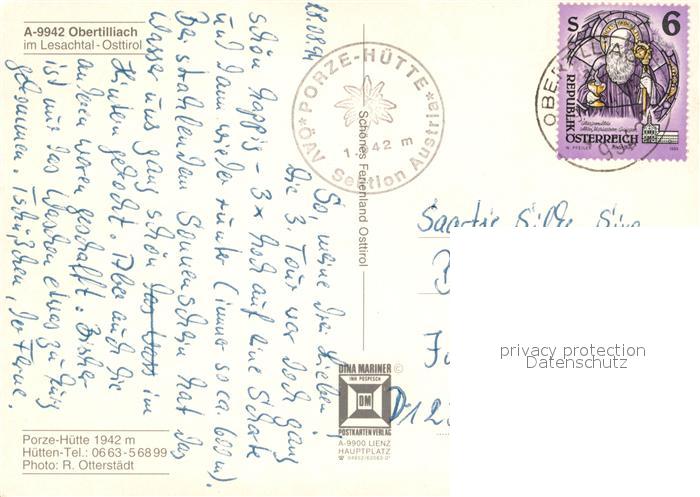 A-9942 Obertilliach
im Lesachtal - Osttirol
28.08.94
So, meine drei Lieben!
Die 3. Tour war doch ganz
schön happig - 3x hoch auf eine Scharte
und dann wieder runter (immer so ca. 600 m).
Bei strahlendem Sonnenschein hat das
Wasser uns ganz schön im
Hintern gekocht. Aber auch die
anderen waren geschafft. Bisher
ist nur das Waschen etwas zu kurz
gekommen. Tschüßchen, der Ferne.
PORZE-HÜTTE
1942 m
ÖAV Sektion Austria
Schönes Ferienland Osttirol
S 6
REPUBLIK
ÖSTERREICH
OBERTILLIA
Saartje Silke
D12
DINA MARINER ©
INH POSPESCH
DM
POSTKARTENVERLAG
A-9900 LIENZ
HAUPTPLATZ
privacy protection
Datenschutz
Porze-Hütte 1942 m
Hütten-Tel.: 0663-56899
Photo: R. Otterstädt